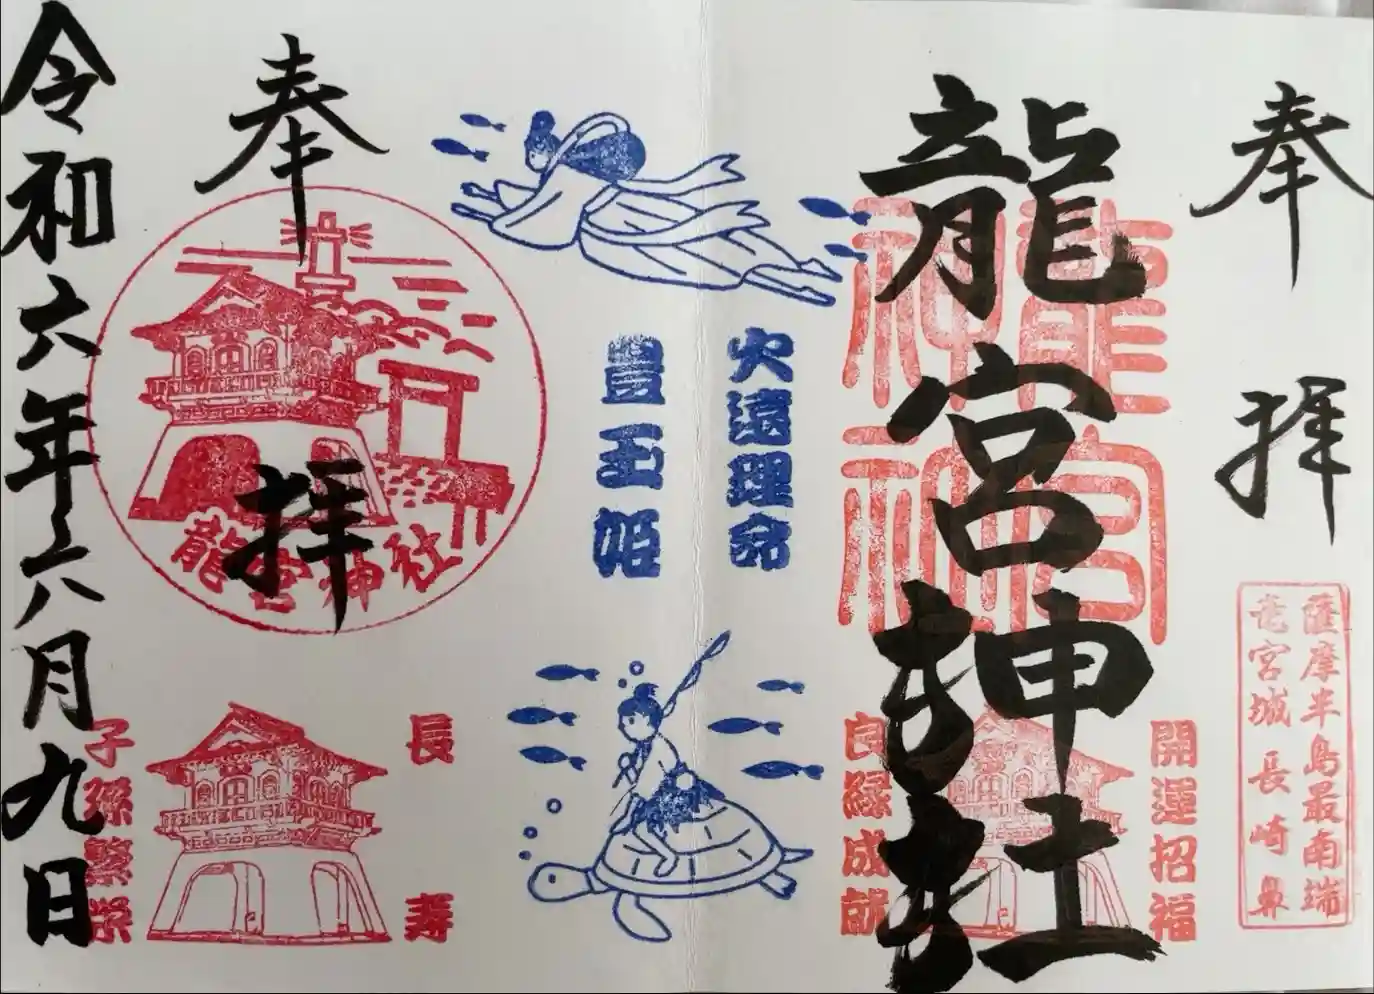 奉拝
龍宮神社
龍宮神社
薩摩半島最南端
竜宮城長崎鼻
開運招福
良縁成就
火遠理命
豊玉姫
奉拝
龍宮神社
長寿
子孫繁栄
令和六年六月九日